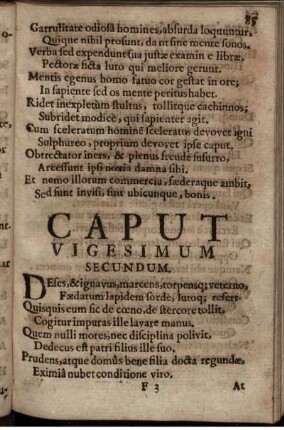 85
Garrulitate odiosâ homines, absurda loquuntur,
Quique nihil prosunt, dant sine mente sonos.
Verba sed expendunt sua justæ examine libræ,
Pectora ficta luto qui meliore gerunt.
Mentis egenus homo fatuo cor gestat in ore;
In sapiente sed os mente peritus habet.
Ridet inexpletùm stultus, tollitque cachinnos;
Subridet modicè, qui sapienter agit.
Cum sceleratum hominē sceleratus devovet igni
Sulphureo, proprium devovet ipse caput.
Obrectator iners, & plenus fraude susurro,
Arcessunt ipsi noxia damna sibi.
Et nemo illorum commercia, fœderaque ambit,
Sed sunt invisi, sint ubicunque, bonis.
CAPUT
VIGESIMUM
SECUNDUM.
DEses, & ignavus, marcens, torpensq; veterno,
Fœdatum lapidem sorde, lutoq; refert
Quisquis eum sic de cœno, de stercore tollit,
Cogitur impuras ille lavare manus.
Quem nulli mores, nec disciplina polivit,
Dedecus est patri filius ille suo.
Prudens, atque domûs bene filia docta regundæ,
Eximiâ nubet conditione viro.
F 3
At